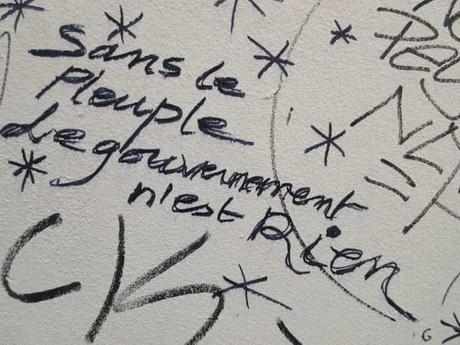 Sans le
Peuple
Le gouvernement
n'est Rien
CK